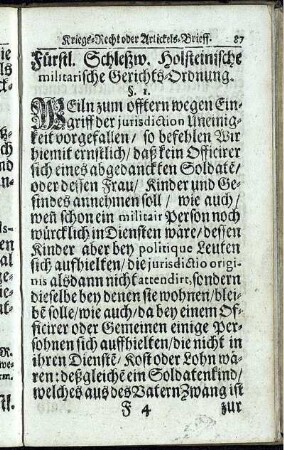 Kriegs-Recht oder Artickels-Brieff. 87
Fürstl. Schleßw. Holsteinische
militarische Gerichts-Ordnung.
§. 1.
WEiln zum offtern wegen Ein-
griff der jurisdiction Uneinig-
keit vorgefallen / so befehlen Wir
hiemit ernstlich / daß kein Officirer
sich eines abgedanckten Soldatē /
oder dessen Frau / Kinder und Ge-
sindes annehmen soll / wie auch /
weñ schon ein militair Person noch
würcklich in Diensten wäre / dessen
Kinder aber bey politique Leuten
sich aufhielten / die jurisdictio origi-
nis alsdann nicht attendirt, sondern
dieselbe bey denen sie wohnen / blei-
bē solle / wie auch / da bey einem Of-
ficirer oder Gemeinen einige Per-
sohnen sich auffhielten / die nicht in
ihren Dienstē / Kost oder Lohn wä-
ren: deßgleichē ein Soldatenkind /
welches aus des Vatern Zwang ist
F 4 zur